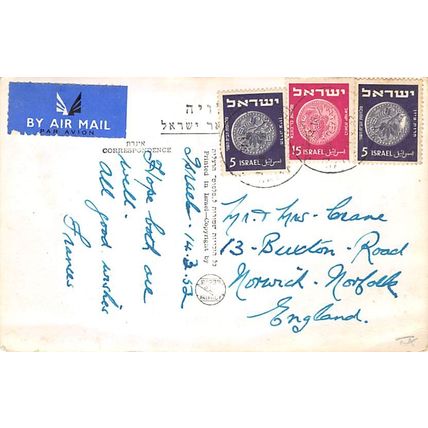 BY AIR MAIL
PAR AVION
ויה
אר ישראל
אגרת
CORRESPONDENCE
ישראל
5 ISRAEL اسرائيل
ישראל
15 ISRAEL اسرائيل
ישראל
5 ISRAEL اسرائيل
Israel. 14.3.52
Hope both are
well.
All good wishes
Frances
Printed in Israel-Copyright by
Mr. & Mrs. Crane
13-Buxton-Road
Norwich-Norfolk
England.